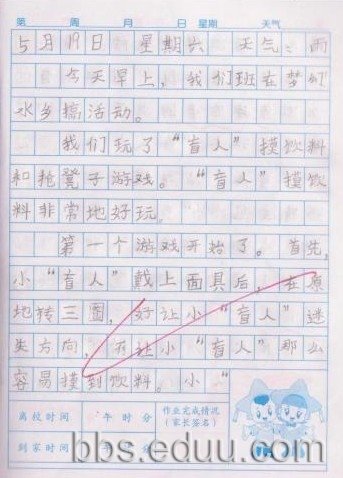 第 周 月 日 星期 天气
5月19日 星期六 天气:雨
今天早上,我们班在梦幻
水乡搞活动。
我们玩了“盲人”摸饮料
和抢凳子游戏。“盲人”摸饮
料非常地好玩。
第一个游戏开始了。首先,
小“盲人”戴上面具后,在原
地转三圈,好让小“盲人”迷
失方向,不让小“盲人”那么
容易摸到饮料。小“
离校时间 年 时 分 作业完成情况
(家长签名)
到家时间 年 时 分
bbs.eduu.com